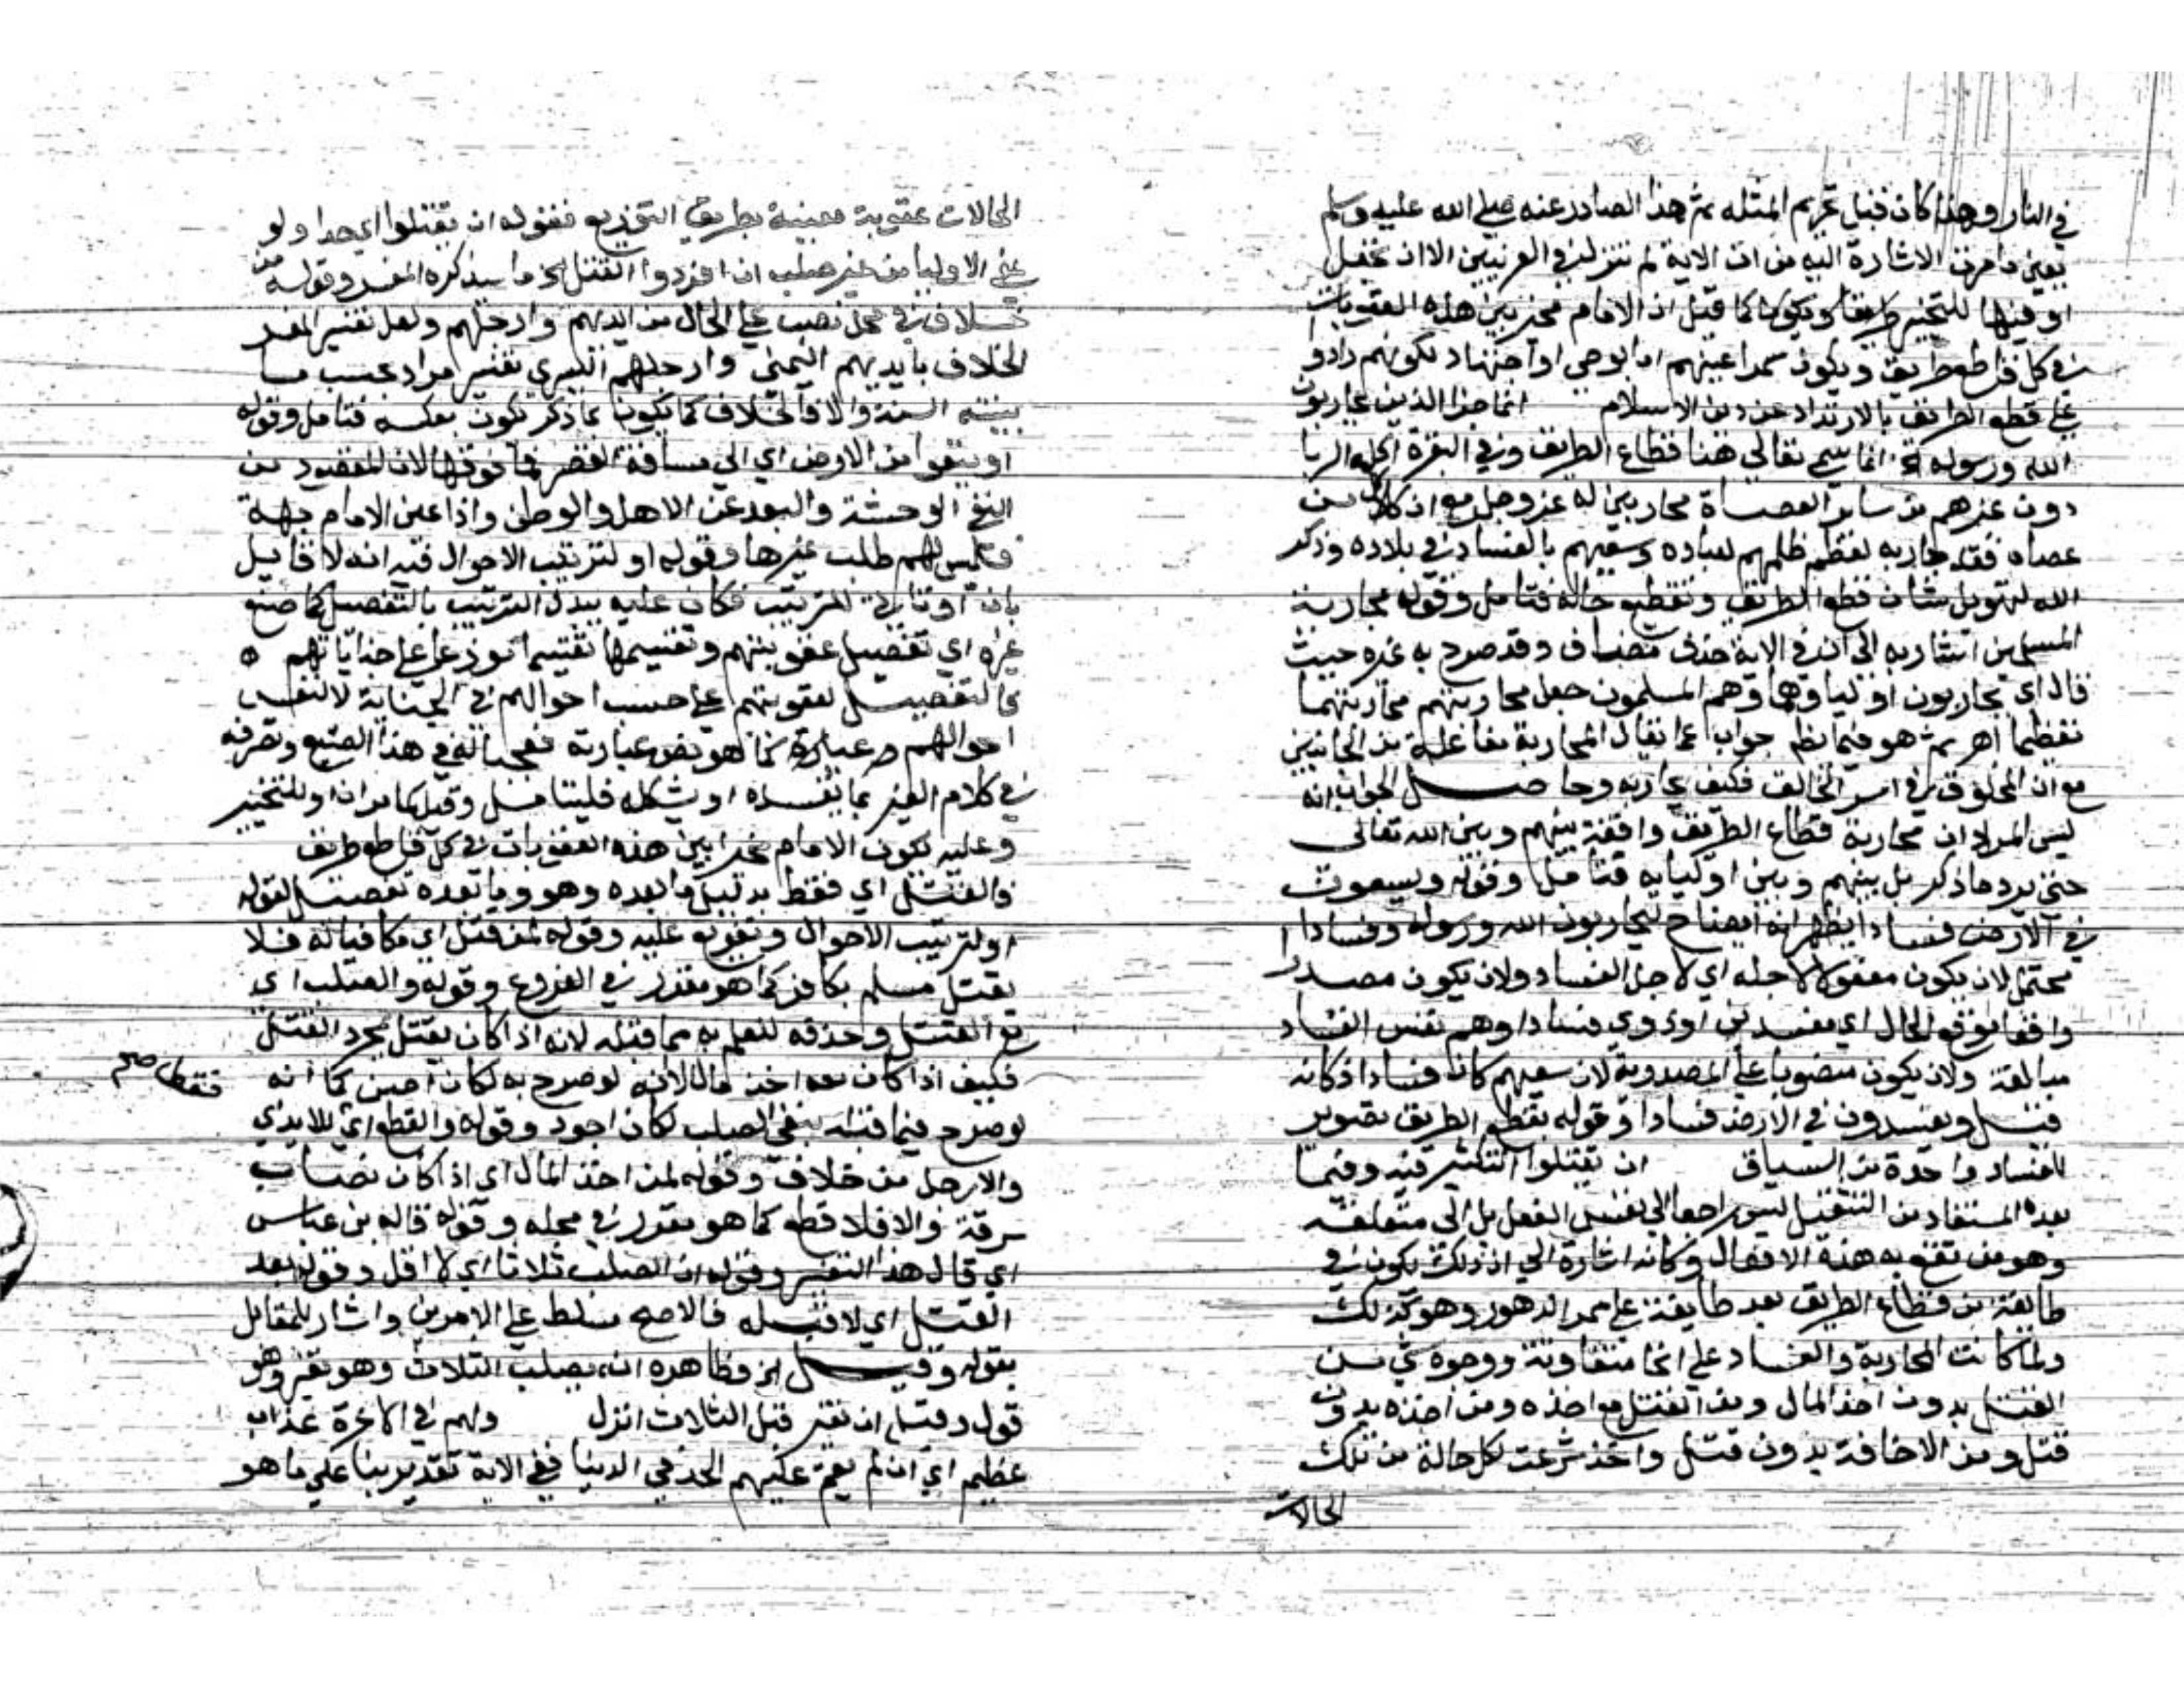 في النار وهذا كان قبل تحريم المثلة ثم هذا الصادر عنه صلى الله عليه وسلم
من ان الاية لم تنزل في العرنيين الا ان
او فيها للتخيير كما قيل ان الامام مخير بين هذه العقوبات
في كل قاطع طريق ويكون سمر اعينهم اما بوحي او اجتهاد لكونهم زادوا
على قطع الطريق بالارتداد عن دين الاسلام انما جزا الذين يحاربون
الله ورسوله انما سمى تعالى هنا قطاع الطريق وفي البقرة اكلة الربا
دون غيرهم من ساير العصاة محاربين له عز وجل مع ان كل من
عصاه فقد حاربه لعظم ظلمهم لعباده وسعيهم بالفساد في بلاده وذكر
الله لتهويل شان قطع الطريق وتفظيع حاله فتامل وقوله بمحاربة
المسلمين اشار به الى ان في الاية حذف مضاف وقد صرح به غيره حيث
قال اي يحاربون اولياوهما وهم المسلمون جعل محاربتهم محاربتهما
تعظيما اهر ثم هو فيما يظهر جواب عما يقال المحاربة مفاعلة من الجانبين
مع ان المخلوق في اسر الخالق فكيف يحاربه وحاصل الجواب انه
ليس المراد ان محاربة قطاع الطريق واقعة بينهم وبين الله تعالى
حتى يرد ما ذكر بل بينهم وبين اوليايه فتامل وقوله ويسعون
في الارض فسادا يظهر انه ايضاح ليحاربون الله ورسوله وفسادا
محتمل لان يكون مفعولا لاجله اي لاجل الفساد ولان يكون مصدرا
واقعا موقع الحال اي مفسدين او ذوي فسادا وهم نفس الفساد
مبالغة ولان يكون منصوبا على المصدرية لان سعيهم كان فسادا اذ كانه
قيل ويفسدون في الارض فسادا وقوله بقطع الطريق تصوير
للفساد واحدة من السياق ان يقتلوا التكثير فيه وفيما
بعده المستفاد من التفعيل ليس راجعا الى نفس الفعل بل الى متعلقه
وهو من تقع به هذه الافعال وكانه اشارة الى ان ذلك يكون في
طايفة من قطاع الطريق بعد طايفة على ممر الدهور وهو كذلك
ولما كانت المحاربة والفساد على انحا متفاوتة ووجوه شتى من
القتل بدون اخذ المال ومن القتل مع اخذه ومن اخذه بدون
قتل ومن الاخافة بدون قتل واخذ شرعت لكل حالة من تلك
الحالات
الحالات عقوبة معينة بطريق التوزيع فقوله ان يقتلوا اي حدا ولو
عفى الاوليا من غير صلب ان افردوا القتل ما سيذكره المفسر وقوله من
خلاف في محل نصب على الحال من ايديهم وارجلهم ولعل تفسير المفسر
الخلاف بايديهم اليمنى وارجلهم اليسرى تفسير مراد بحسب ما
بينته السنة والا فالخلاف كما يكون بما ذكر يكون بعكسه فتامل وقوله
او ينفوا من الارض اي الى مسافة القصر فما فوقها لان المقصود من
النفي الوحشة والبعد عن الاهل والوطن واذا عين الامام جهة
فليس لهم طلب غيرها وقوله او لترتيب الاحوال فيه انه لا قايل
بان او تاتي للترتيب فكان عليه يبدل الترتيب بالتفصيل كما صنع
غيره اي تفصيل عقوبتهم وتقسيمها تقسيما موزعا على جناياتهم
فالتفصيل لعقوبتهم على حسب احوالهم في الجناية لا لنفس
احوالهم كما هو نص عبارته في هذا الصنيع وتصرفه
في كلام الغير بما يفسده او يشكله فليتامل وقيل كما مر ان او للتخيير
وعليه يكون الامام مخيرا بين هذه العقوبات في كل قاطع طريق
فالقتل اي فقط بدليل ما بعده وهو وما بعده تفصيل لقوله
او لترتيب الاحوال وتفريع عليه وقوله لمن قتل اي مكافيا له فلا
يقتل مسلم بكافر كما هو مقرر في الفروع وقوله والصلب اي
مع القتل وحذفه للعلم به مما قبله لانه اذا كان يقتل بمجرد القتل
فكيف اذا كان معه اخذ مال لانه لو صرح به لكان احسن كما انه
فقط صح
لو صرح فيما قبله بنفي الصلب لكان اجود وقوله والقطع اي للايدي
والارجل من خلاف وقوله لمن اخذ المال اي اذا كان نصاب
سرقة والا فلا قطع كما هو مقرر في محله وقوله قاله بن عباس
اي قال هذا التفسير وقوله ان الصلب ثلاثا اي لا اقل وقوله بعد
القتل اي لا قبله فالاصح مسلط على الامرين واشار للمقابل
بقوله وقيل الخ وظاهره انه يصلب الثلاث وهو
قول وقيل ان قبل الثلاث انزل ولهم في الاخرة عذاب
عظيم اي ان لم يقم عليهم الحد في الدنيا ففي الاية تقدير بنا على ما هو